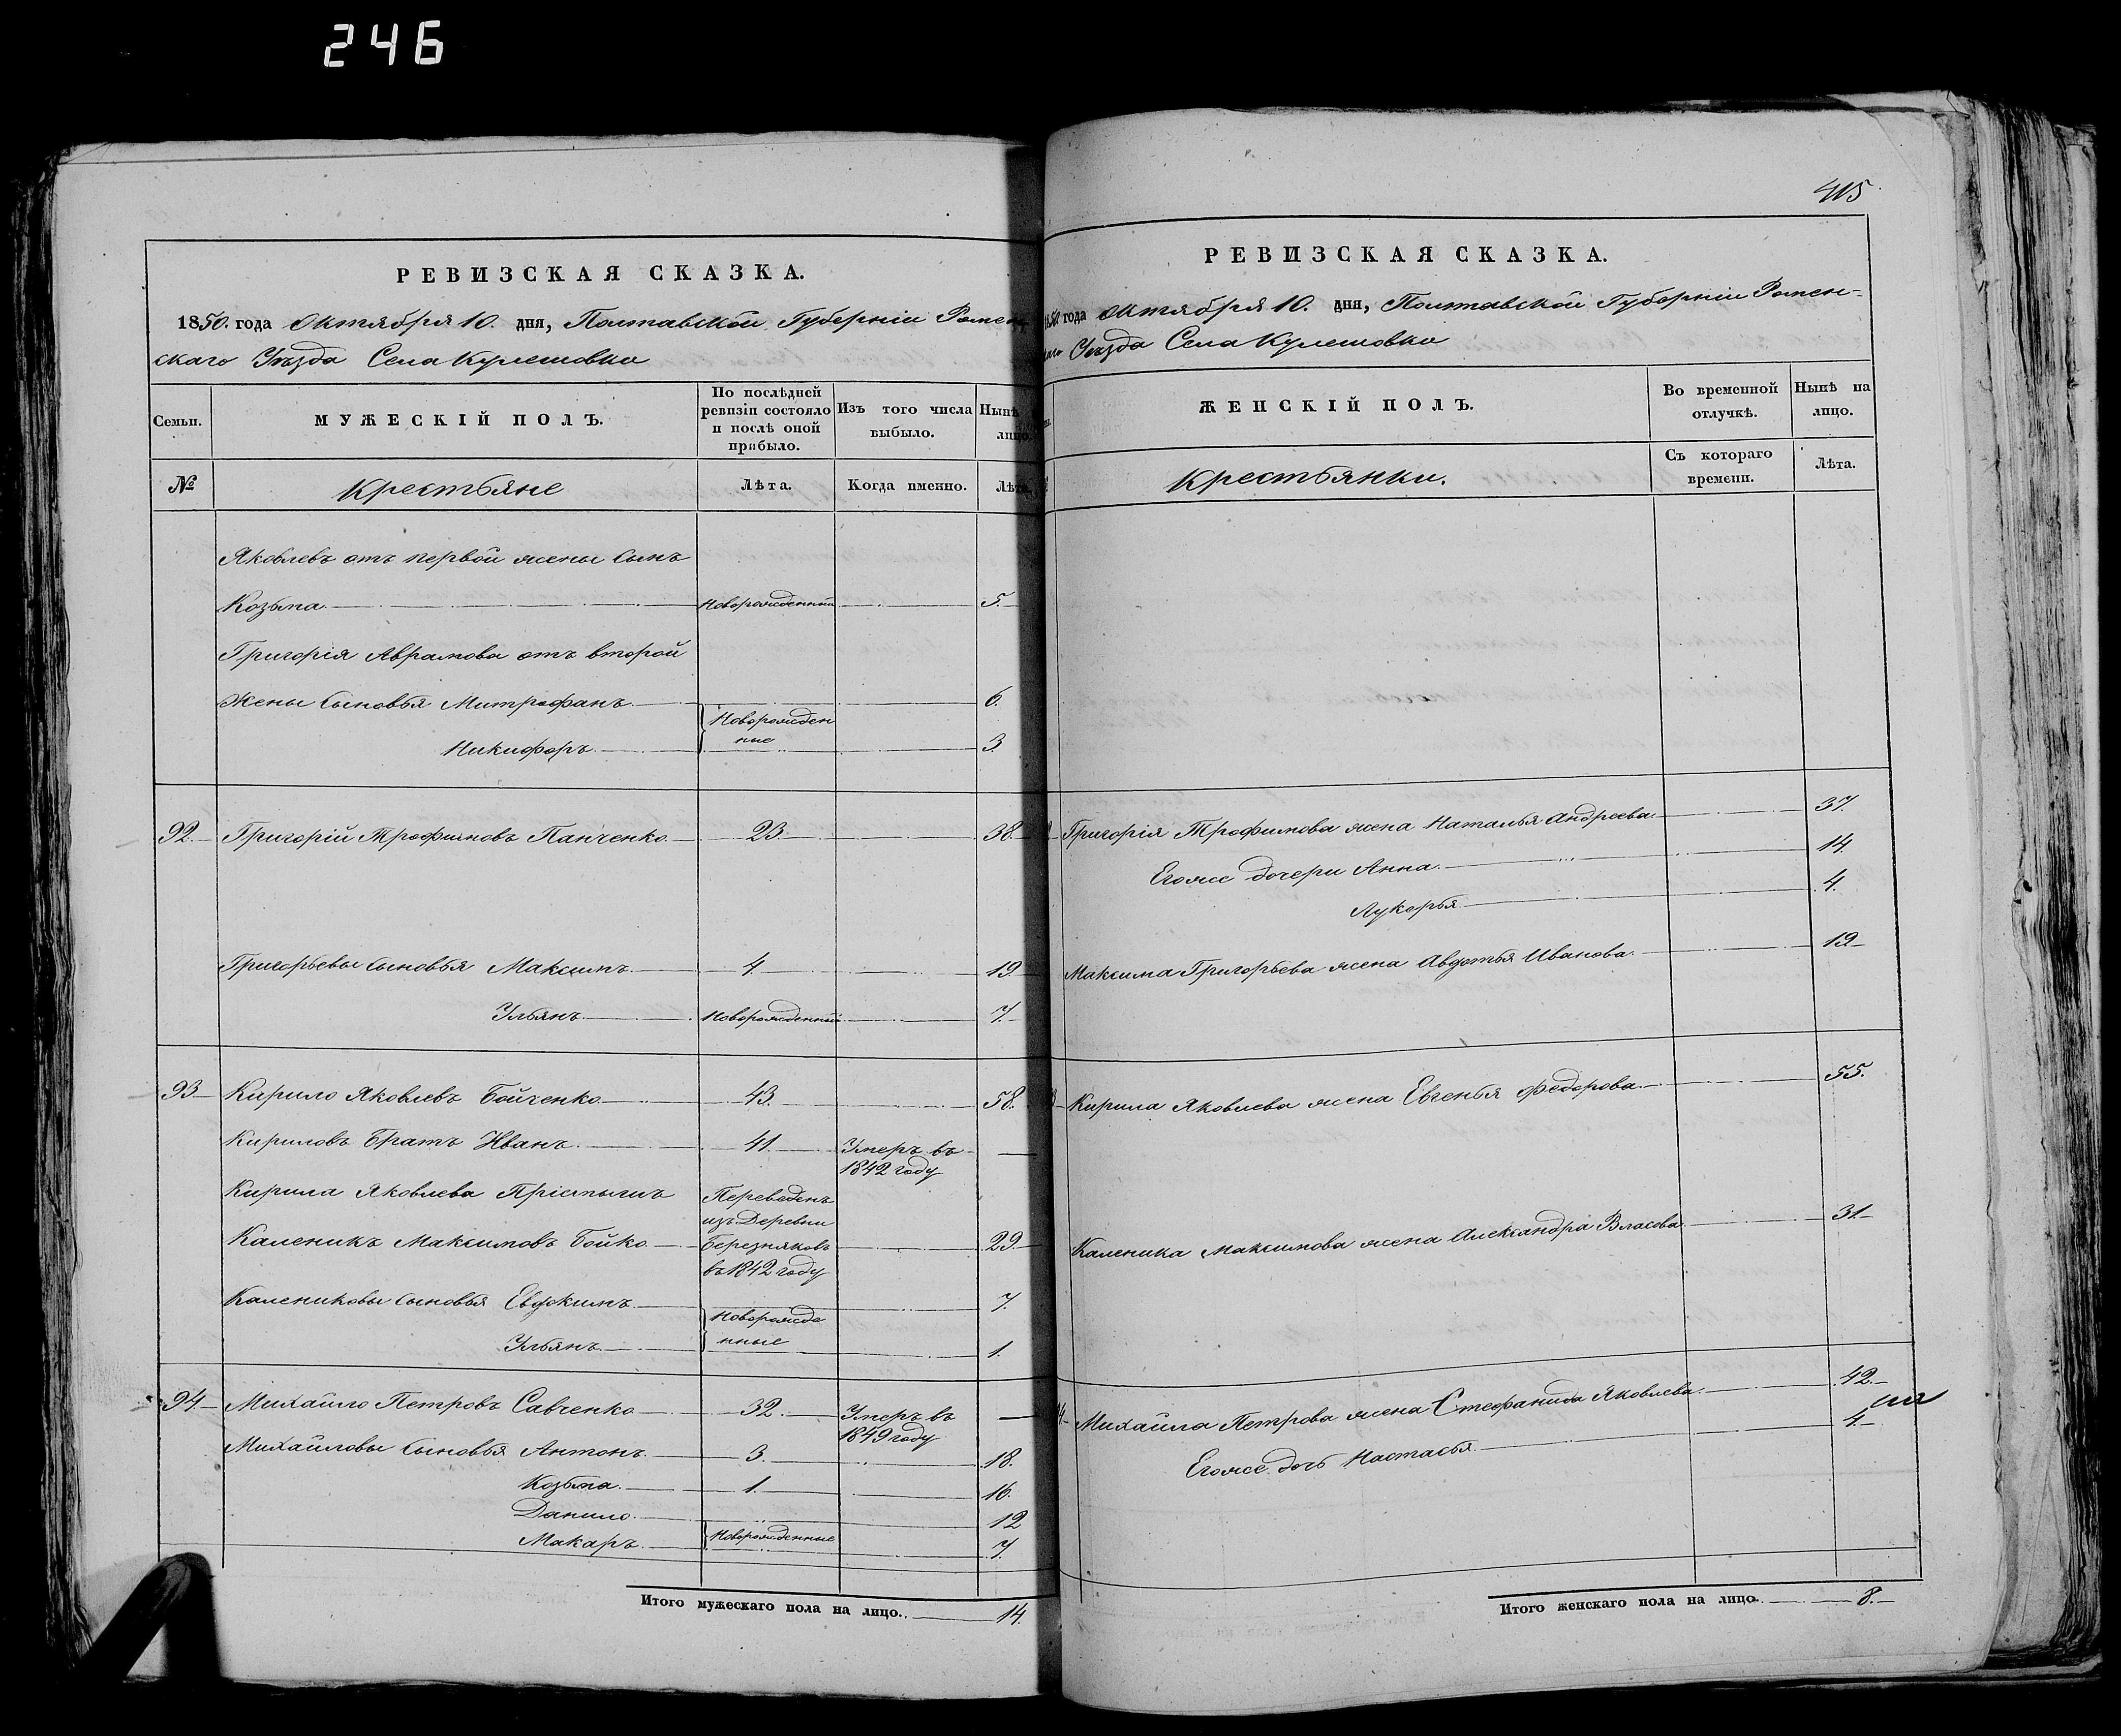 246
РЕВИЗСКАЯ СКАЗКА.
1850. года Октября 10. дня, Полтавской Губерніи Ромен-
скаго Уѣзда Села Кулешовки
Семьи.
МУЖЕСКІЙ ПОЛЪ.
По послѣдней
ревизіи состояло
и послѣ оной
прибыло.
Изъ того числа
выбыло.
Нынѣ
лицо.
№
Крестьяне
Лѣта.
Когда именно.
Лѣта.
Яковлевъ отъ первой жены сынъ
Козьма. Новорожденный 5.
Григорія Аврамова отъ второй
Жены сыновья Митрофанъ 6.
Новорожден
ные
Никифоръ 3.
92. Григорій Трофимовъ Панченко 23. 38.
Григорьевы сыновья Максимъ 4. 19.
Ульянъ Новорожденный 7.
93. Кирило Яковлевъ Бойченко 43. 58.
Кириловъ Братъ Иванъ 41. Умеръ въ
1842 году
Кирила Яковлева Пріемышъ Переведенъ
изъ Деревни
Каленикъ Максимовъ Бойко Березняковъ 29.
въ 1842 году
Калениковы сыновья Евдокимъ 7.
Новорожде
нные
Ульянъ 1.
94. Михайло Петровъ Савченко 32. Умеръ въ
1849 году
Михайловы сыновья Антонъ 3. 18.
Козьма 1. 16.
Данило 12
Макаръ Новорожденные 7.
Итого мужескаго пола на лицо. 14.
415
РЕВИЗСКАЯ СКАЗКА.
1850 года Октября 10. дня, Полтавской Губерніи Ромен-
скаго Уѣзда Села Кулешовки
ЖЕНСКІЙ ПОЛЪ.
Во временной
отлучкѣ.
Нынѣ на
лицо.
Крестьянки.
Съ котораго
времени.
Лѣта.
Григорія Трофимова жена Наталья Андреева 37.
Егоже дочери Анна 14.
Лукерья 4.
Максима Григорьева жена Авдотья Иванова 19
Кирила Яковлева жена Евгенья Федорова 55.
Каленика Максимова жена Александра Власова 31.
Михайла Петрова жена Стефанида Яковлева 42.
Егоже дочь Настасья 4.
Итого женскаго пола на лицо 8.